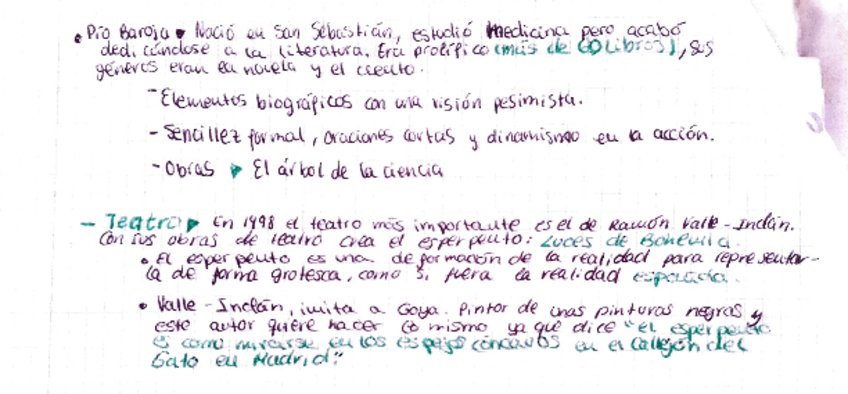 • Pío Baroja ▸ Nació en San Sebastián, estudió medicina pero acabó
dedicándose a la literatura. Era prolífico (más de 60 libros), sus
géneros eran la novela y el cuento.
- Elementos biográficos con una visión pesimista.
- Sencillez formal, oraciones cortas y dinamismo en la acción.
- Obras ▸ El árbol de la ciencia
- Teatro ▸ En 1998 el teatro más importante es el de Ramón Valle-Inclán.
Con sus obras de teatro crea el esperpento: Luces de Bohemia.
• El esperpento es una deformación de la realidad para representar-
la de forma grotesca, como si fuera la realidad
• Valle-Inclán, imita a Goya. Pintor de unas pinturas negras y
este autor quiere hacer lo mismo ya que dice "el esperpento
es como mirarse en los espejos cóncavos en el callejón del
Gato en Madrid".